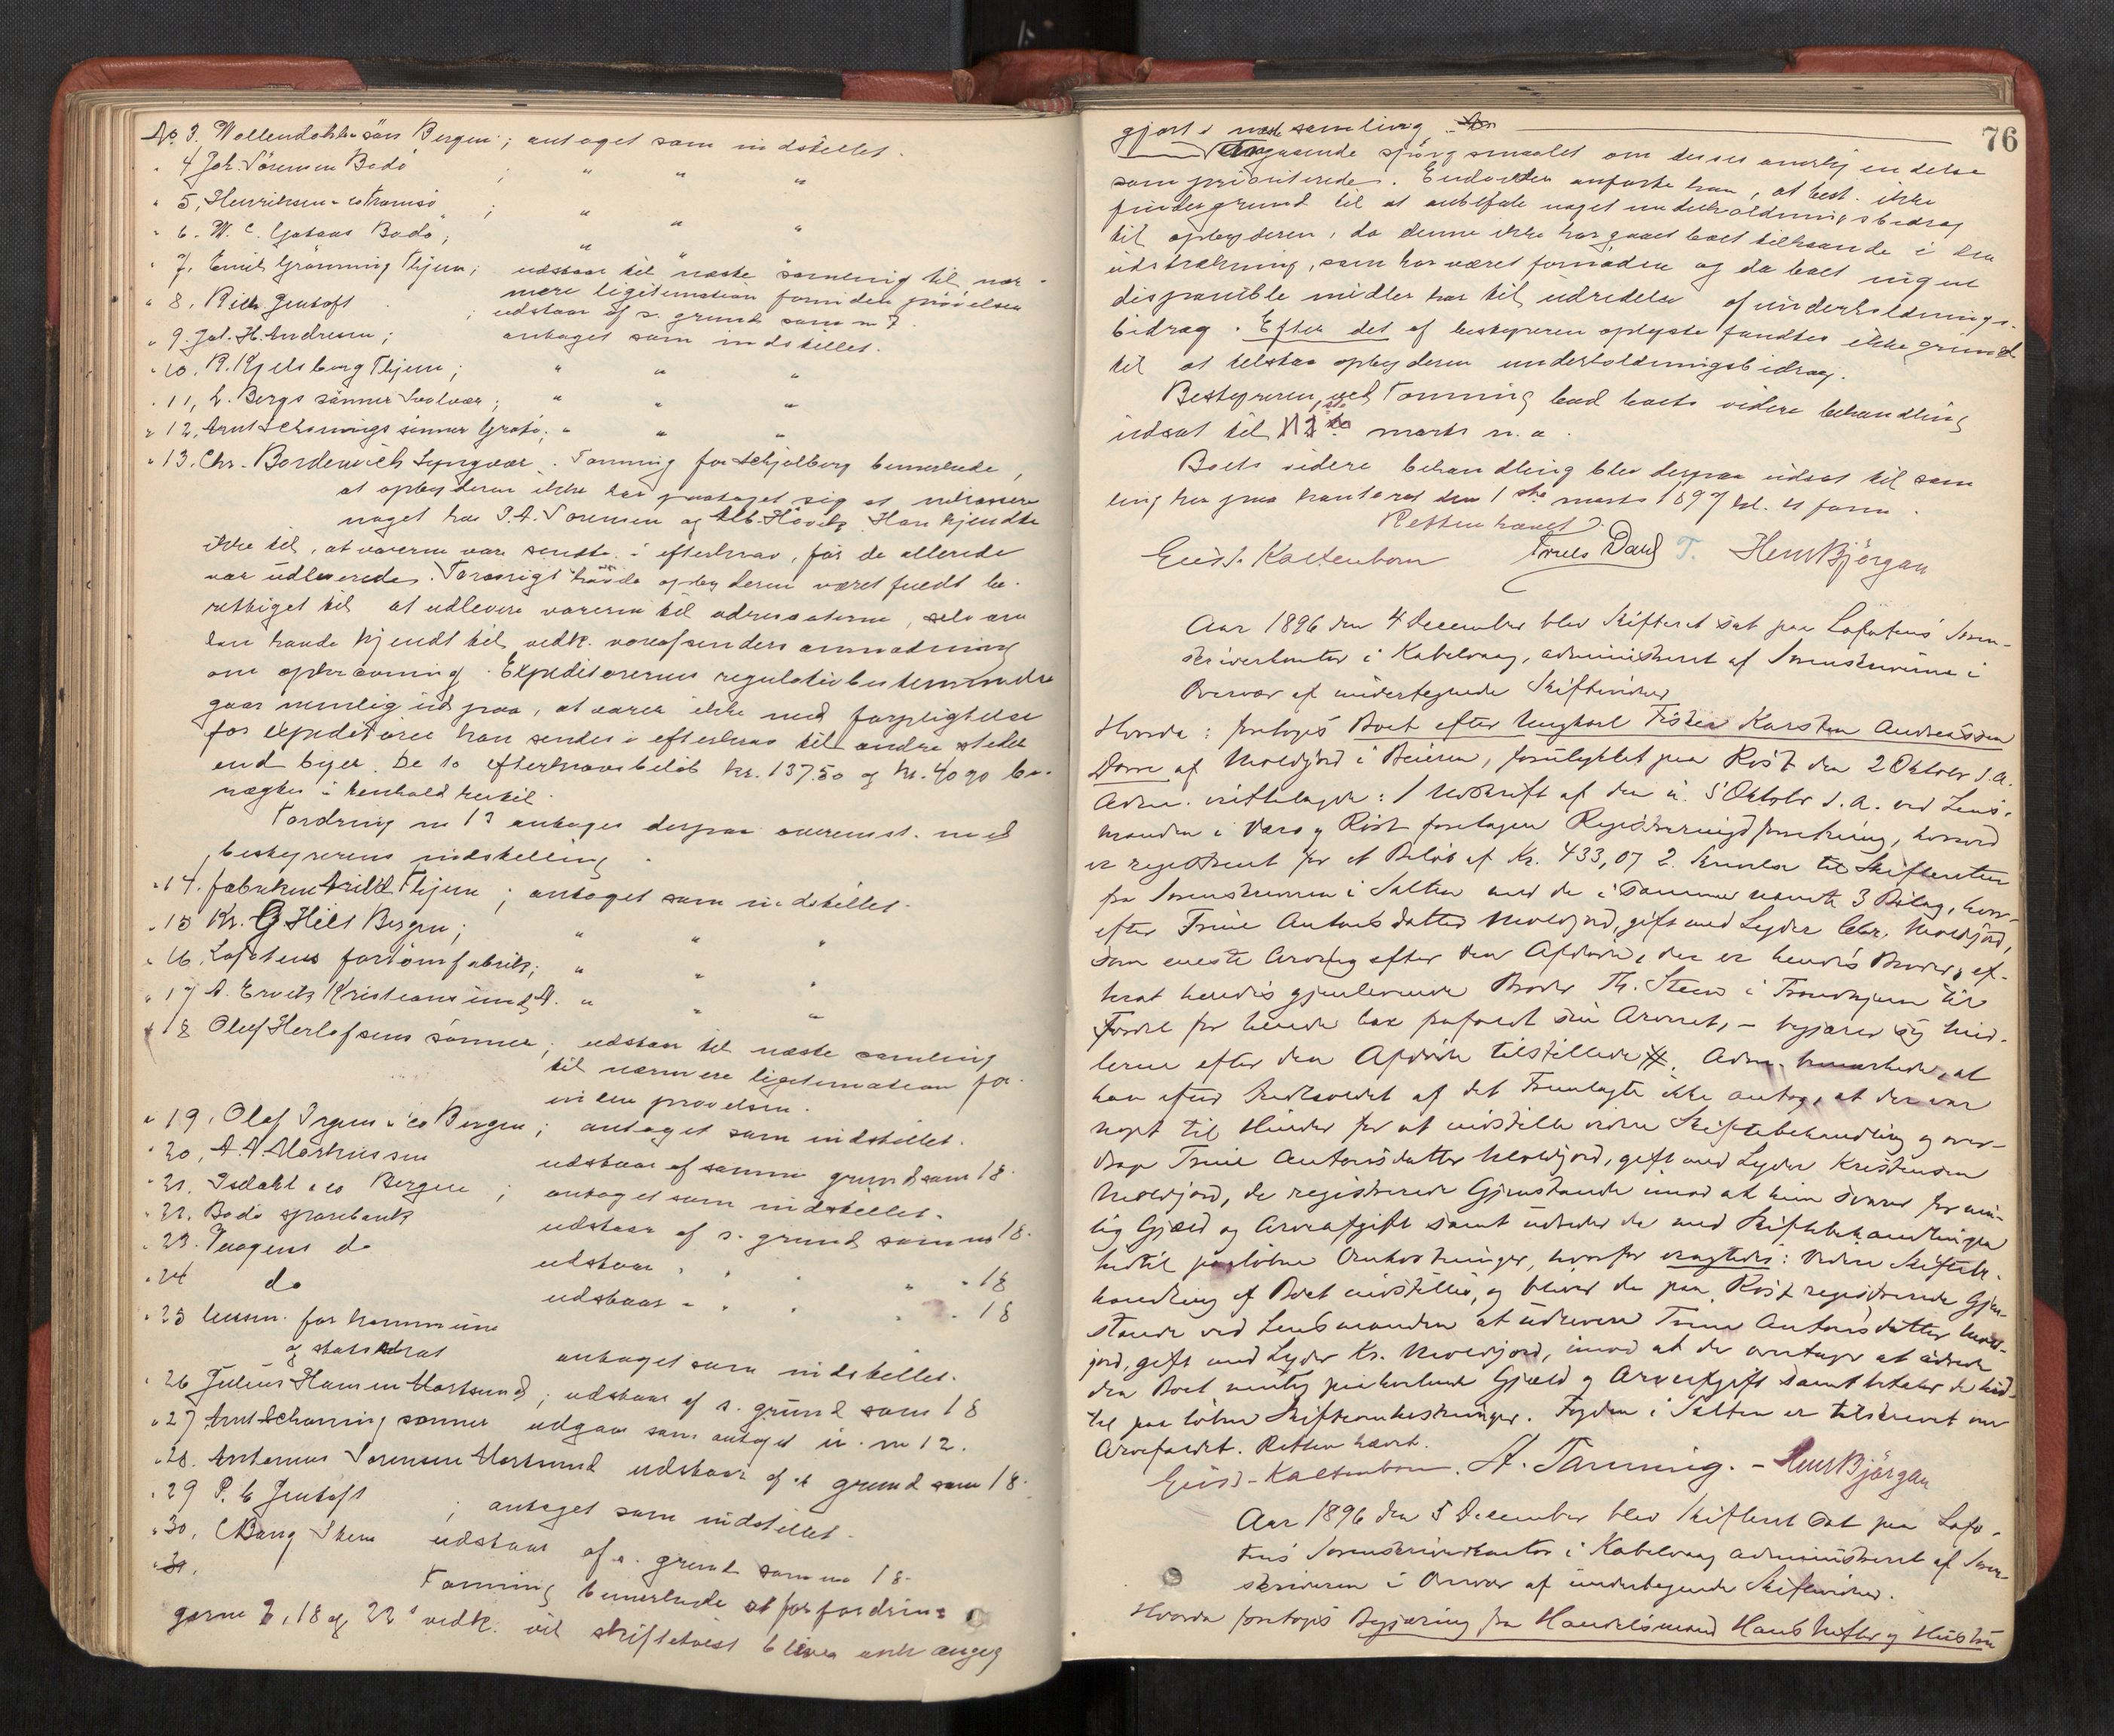 No 3. Wollendahl & søn Bergen; antaget som indstillet.
" 4 Joh. Sörensen Bodö ; " " "
" 5, Henriksen & co Tromsö ; " " "
" 6. W. C. Bodö ; " " "
" 7. Emil Grönning Thjem; udstaar til næste samling til nær-
mere legitimation forinden prøvelsen
" 8, Rich Jentoft ; udstaar af s. grund som n 7.
" 9. Joh. H. Andresen ; antaget som indstillet.
" 10. R. Kjelsberg Thjem ; " " "
" 11, L. Bergs sönner Svolvær ; " " "
" 12, Arnt Schönings sönner ; " " "
" 13. Chr. Borderwich Lyngvær. Tanning for Schjelberg bemerkede,
at opbyderen ikke har paataget sig at indkassere
noget hos P. A. Sörensen og Alb. Hövik. Han kjendte
ikke til, at varerne var sendte i efterkrav, før de allerede
var udleverede. Forövrigt havde opbyderen været fuldt be-
rettiget til at udlevere varerne til adressaterne, selv om
han havde kjendt til vedk. vareafsenders anmodning
om opkrævning. Expeditörernes regulativbestemmelse
gaar nemlig ud paa, at varer ikke med forpligtelse
for expeditören kan sendes i efterkrav til andre steder
end byer. De to efterkravsbeløb kr. 137.50 og kr. 40.90 be-
nægtes i henhold hertil.
Fordring n 13 antages derpaa overensst. med
bestyrerens indstilling.
" 14. fabriken Thjem ; antaget som indstillet.
" 15 Kr. G Hill Bergen ; " " "
" 16. Lofotens fabrik ; " " "
" 17 A. Ervik Kristiansund N. " " "
" 18 Oluf Herlofsens sønner ; udstaar til næste samling
til nærmere legitimation for-
inden prøvelsen.
" 19, Olaf Irgens & co Bergen ; antaget som indstillet.
" 20, A. A. Markussen udstaar af samme grund som 18.
" 21, Isdahl & co Bergen ; antaget som indstillet.
" 22. Bodö sparebank udstaar af s. grund som no 18.
" 23. Vaagens do udstaar " " " " 18
" 24 do udstaar " " " " 18
" 25 lensm. for kommune
og statsskat antaget som indstillet.
" 26 Julius Hansen Mortsund ; udstaar af s. grund som 18
" 27 Arnt Schöning sønner udgaar som antaget u. no 12.
" 28. Antonius Sörensen Mortsund udstaar af s. grund som 18.
" 29 P. C Jentoft ; antaget som indstillet.
" 30, C Bang Skem udstaar af s. grund som no 18.
" 31.
Tanning bemerkede at for fordrin-
gerne 7, 18 og 22s vedk. vil skiftetvist blive anh angig
76
gjort i næste samling.
Angaaende spørgsmaalet om deres anerkjendelse
som prioriterede. Endvidere anførte han, at best. ikke
finder grund til at anbefale noget underholdningsbidrag
til opbyderen, da denne ikke har gaaet boet tilhaande i den
udstrækning, som har været fornöden og da boet ingen
disponible midler har til udredelse af underholdnings-
bidrag. Efter det af bestyreren oplyste fandtes ikke grund
til at tilstaa opbyderen underholdningsbidrag.
Bestyreren ved Tanning bad boets videre behandling
udsat til 1ste marts n. a.
Boets videre behandling blev derpaa udsat til sam
ling her paa kontoret den 1ste marts 1897 kl. 11 form.
Retten hævet.
Gust. Kaltenborn Truls Dahl T. Hens Björgan
Aar 1896 den 4 December blev Skifteret sat paa Lofotens Soren-
skriverkontor i Kabelvaag, administreret af Sorenskriveren i
Overvær af undertegnede Skiftevidner
Hvorda: foretoges Boet efter Ungkarl Fisker Karsten Andreassen
af Moldjord i Beieren, forulykket paa Röst den 2 Oktober d. A.
Adm. irettelagde: 1 Udskrift af den u. 5 Oktober d. A. ved Lens-
manden i Værö og Röst foretagen Registreringsforretning, hvorved
er registreret for et Beløb af Kr. 433,07 2. Skrivelse til Skifteretten
fra Sorenskriveren i Salten med de i samme nævnte 3 Bilag, hvor-
efter Trine Antonsdatter Moldjord, gift med Lyder Chr. Moldjord,
som eneste Arving efter den Afdøde, der er hendes Broder, ef-
terat hendes gjenlevende Broder Th. Steen i Trondhjem til
Fordel for hende har frafaldt sin Arveret, – begjærer sig Mid-
lerne efter den Afdøde tilstillede. Adm. bemærkede, at
han efter Indholdet af det Fremlagte ikke antog, at der var
noget til Hinder for at indstille videre Skiftebehandling og over-
drage Trine Antonsdatter Moldjord, gift med Lyder Kristensen
Moldjord, de registrerede Gjenstande imod at hun svarer for mu-
lig Gjæld og Arveafgift samt udreder de med Skiftebehandlingen
hidtil paaløbne Omkostninger, hvorfor eragtedes: Videre Skiftebe-
handling af Boet indstilles, og bliver de paa Röst registrerede Gjen-
stande ved Lensmanden at udlevere Trine Antonsdatter Mold-
jord, gift med Lyder Kr. Moldjord, imod at de overtager at udrede
den Boet muligt paahvilende Gjæld og Arveafgift samt betaler de hid-
til paaløbne Skifteomkostninger. Fogden i Salten er tilskrevet om
Arvefaldet. Retten hævet.
Gust. Kaltenborn. A. Tanning. – Hens Björgan
Aar 1896 den 5 December blev Skifteret sat paa Lofo-
tens Sorenskriverkontor i Kabelvaag administreret af Soren-
skriveren i Overvær af undertegnede Skiftevidner.
Hvorda foretoges Begjæring fra Handelsmand Hans og Hustru